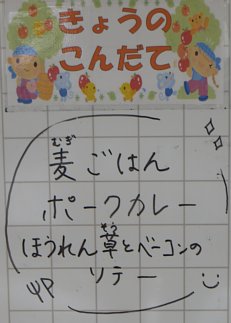 きょうの
こんだて
麦ごはん
ポークカレー
ほうれん草とベーコンの
ソテー